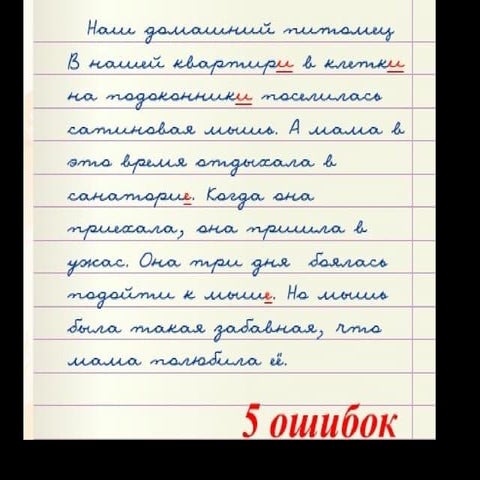 Наш домашний питомец
В нашей квартири в клетки
на подоконники поселилась
сатиновая мышь. А мама в
это время отдыхала в
санаторие. Когда она
приехала, она пришла в
ужас. Она три дня боялась
подойти к мыше. Но мышь
была такая забавная, что
мама полюбила её.
5 ошибок